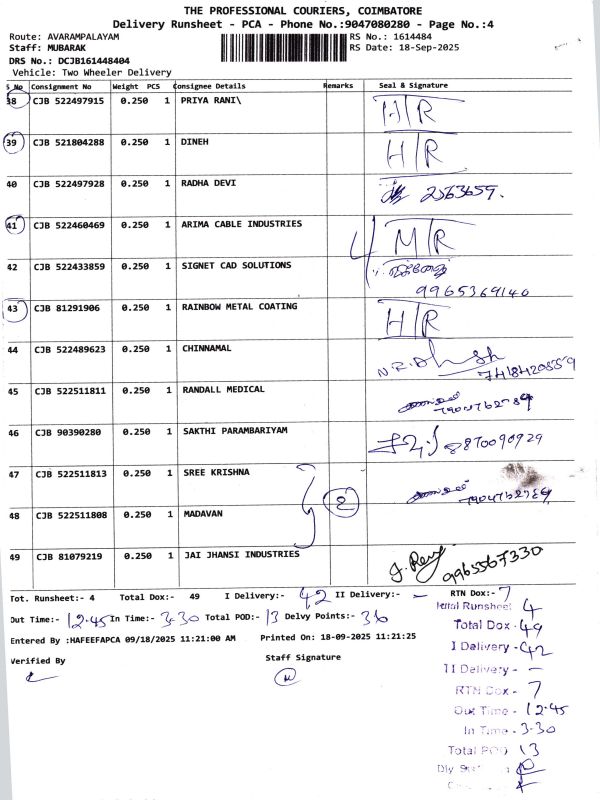 THE PROFESSIONAL COURIERS, COIMBATORE
Delivery Runsheet - PCA - Phone No.:9047080280 - Page No.:4
Route: AVARAMPALAYAM RS No.: 1614484
Staff: MUBARAK RS Date: 18-Sep-2025
DRS No.: DCJB161448404
Vehicle: Two Wheeler Delivery
S No Consignment No Weight PCS Consignee Details Remarks Seal & Signature
38 CJB 522497915 0.250 1 PRIYA RANI\ H/R
39 CJB 521804288 0.250 1 DINEH H/R
40 CJB 522497928 0.250 1 RADHA DEVI 2563659.
41 CJB 522460469 0.250 1 ARIMA CABLE INDUSTRIES M/R
42 CJB 522433859 0.250 1 SIGNET CAD SOLUTIONS
9965369140
43 CJB 81291906 0.250 1 RAINBOW METAL COATING H/R
44 CJB 522489623 0.250 1 CHINNAMAL
45 CJB 522511811 0.250 1 RANDALL MEDICAL
46 CJB 90390280 0.250 1 SAKTHI PARAMBARIYAM 8870090929
47 CJB 522511813 0.250 1 SREE KRISHNA
48 CJB 522511808 0.250 1 MADAVAN
49 CJB 81079219 0.250 1 JAI JHANSI INDUSTRIES 9965567330
Tot. Runsheet:- 4 Total Dox:- 49 I Delivery:- 42 II Delivery:- – RTN Dox:- 7
Out Time:- 12.45 In Time:- 3-30 Total POD:- 13 Delvy Points:- 36
Entered By :HAFEEFAPCA 09/18/2025 11:21:00 AM Printed On: 18-09-2025 11:21:25
Verified By Staff Signature
Total Runsheet 4
Total Dox - 49
I Delivery - 42
II Delivery - –
RTN Dox - 7
Out Time - 12.45
In Time - 3-30
Total POD 13
Dly